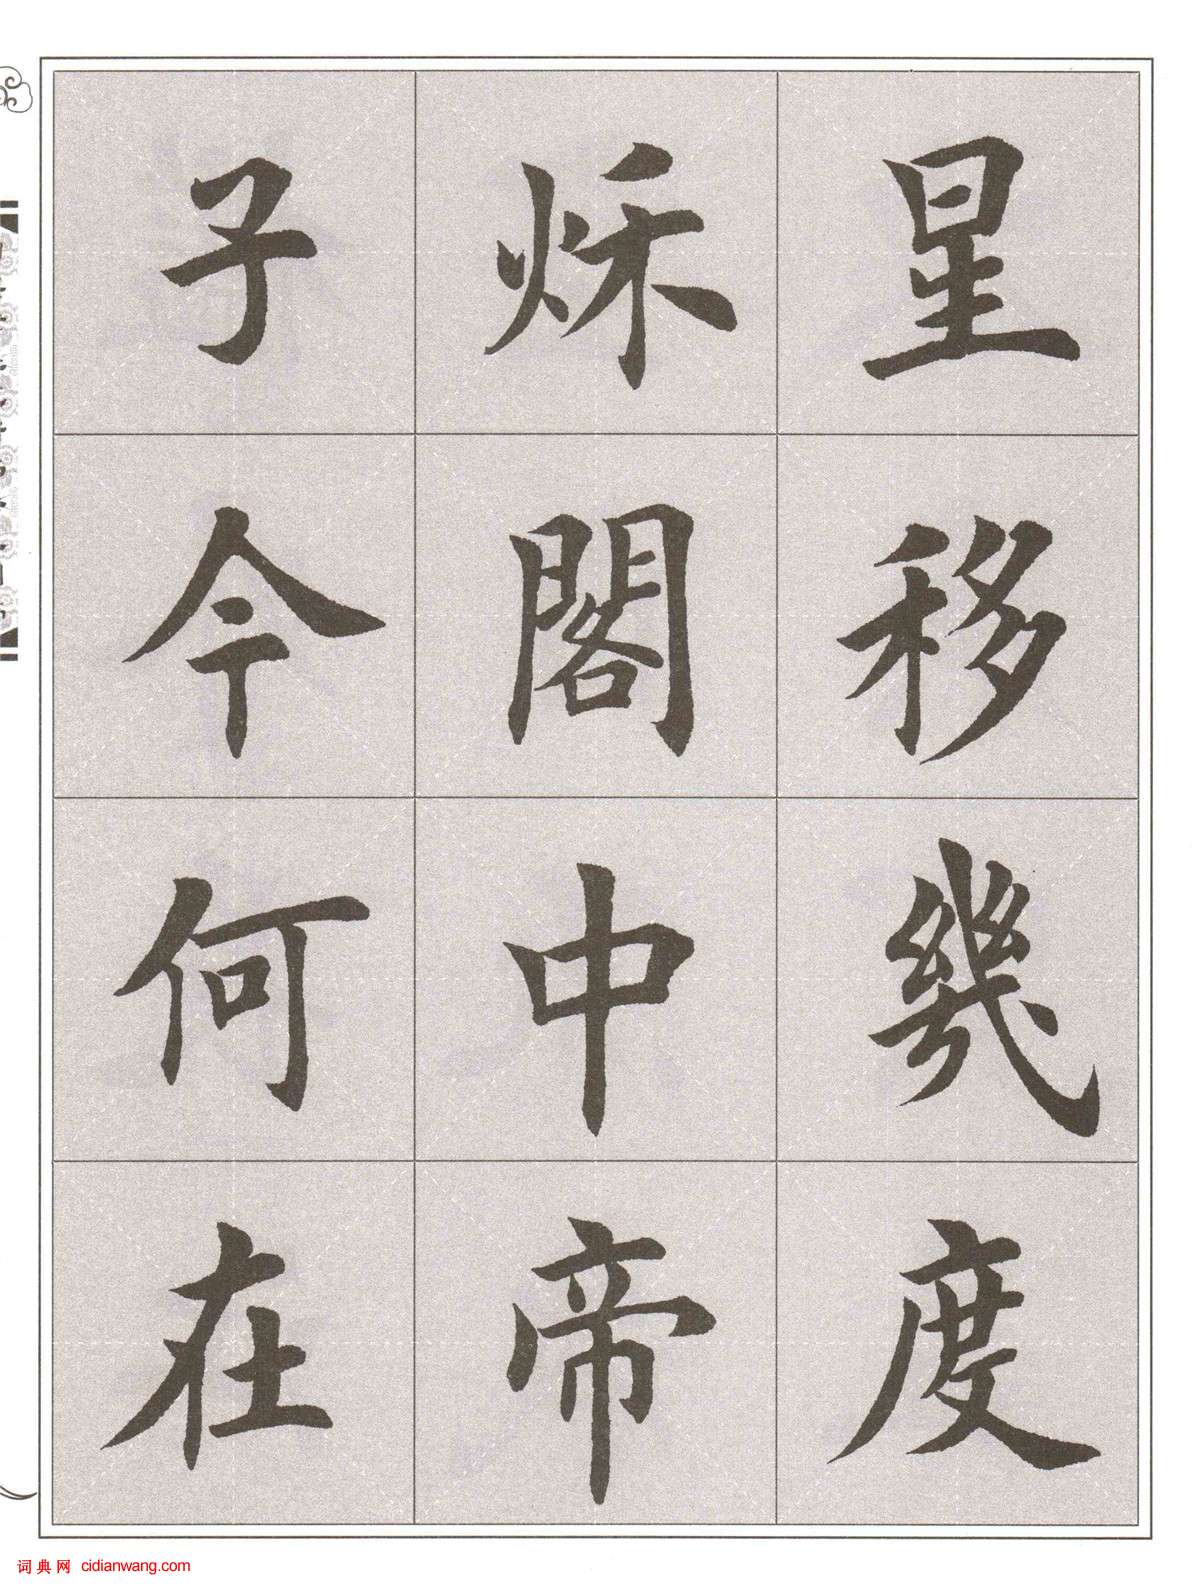 星移幾度
烁閣中帝
子今何在
词典网 cidianwang.com